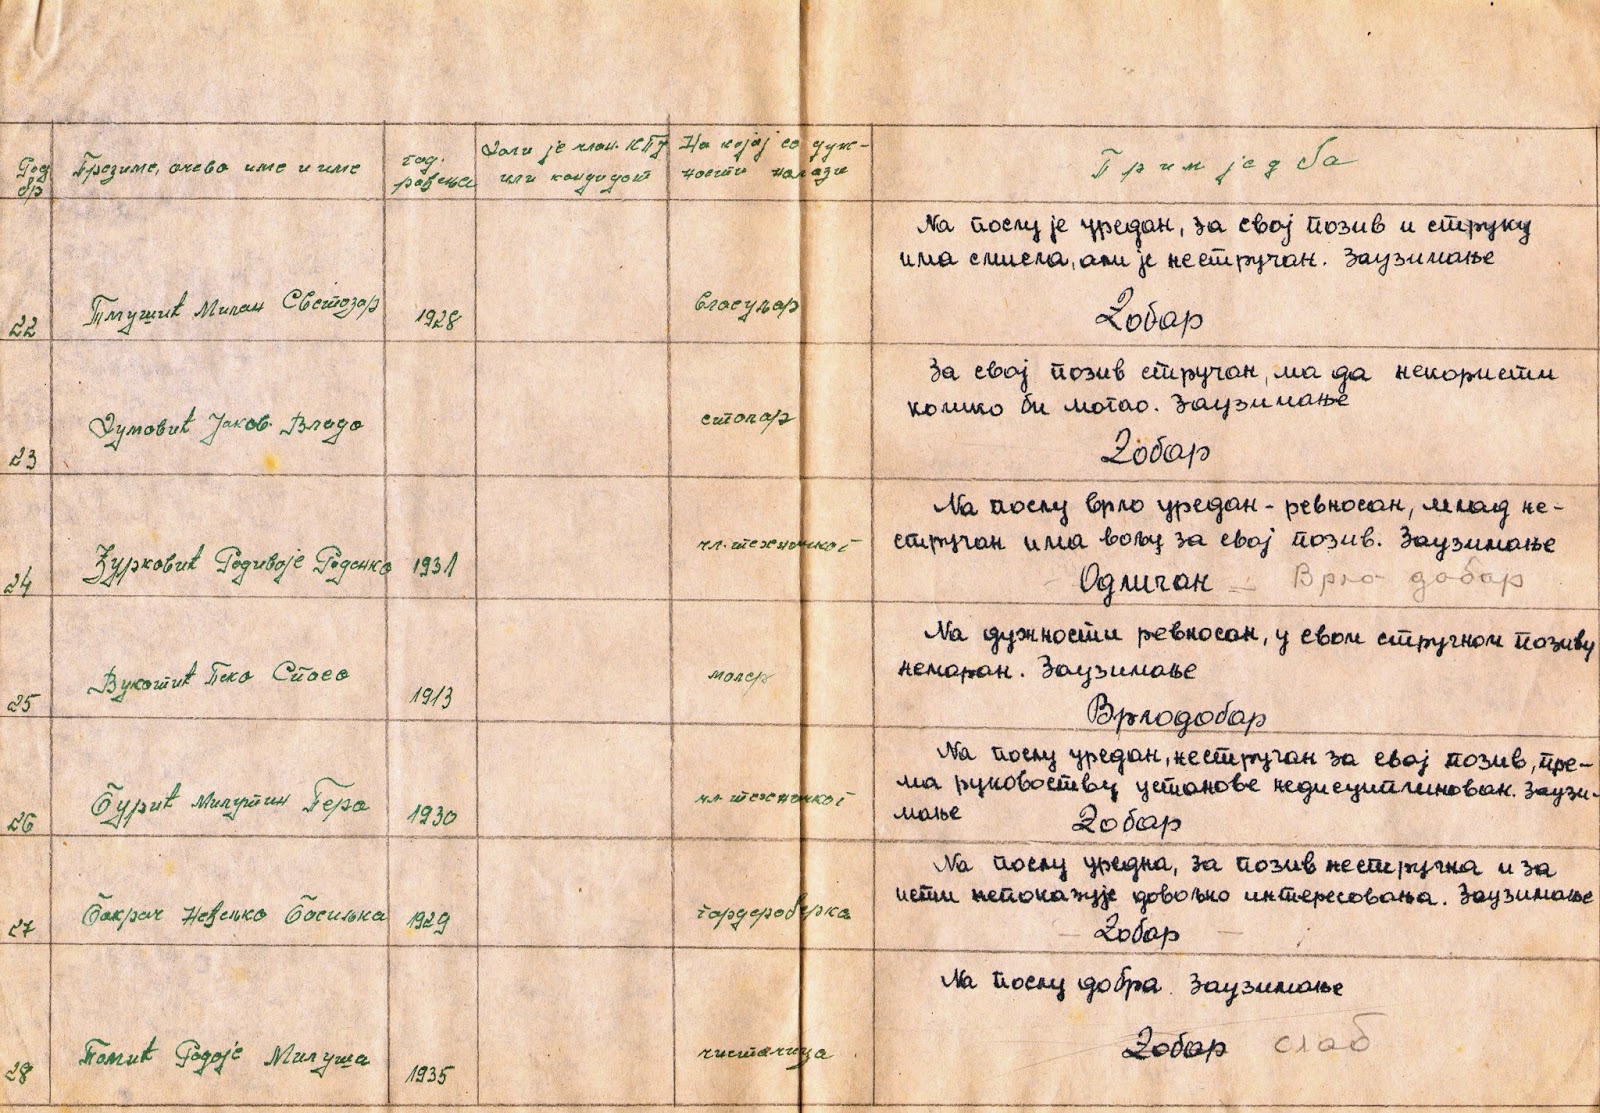 Ред бр
Презиме, очево име и име
год. рођења
Дали је члан КПЈ
или кандидат
На којој се дуж-
ности налази
Примједба
На послу је уредан, за свој позив и струку
има смисла, али је нестручан. Заузимање
22 Милан Светозар 1928 власуљар
Добар
За свој позив стручан, ма да некористи
колико би могао. Заузимање
23 Јаков Владо столар
Добар
На послу врло уредан - ревносан, млад не-
стручан има вољу за свој позив. Заузимање
24 Зурковић Радивоје Раденко 1931 чл. техничког
Одличан Врло добар
На дужности ревносан, у свом стручном позиву
немаран. Заузимање
25 Вукотић Пеко Спасо 1913 молер
Врлодобар
На послу уредан, нестручан за свој позив, пре-
ма руковоству установе недисциплинован. Заузи-
мање Добар
26 Ђурић Милутин Перо 1930 чл. техничког
На послу уредна, за позив нестручна и за
исти непоказује довољно интересовања. Заузимање
27 Бакрач Невељко Васиљка 1929 гардероберка
Добар
На послу добра. Заузимање
28 Томић Радоје Милуша 1935 чистачица
Добар слаб